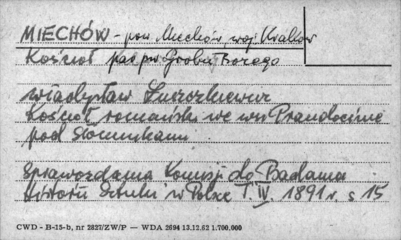 MIECHÓW - pow. Miechów, woj. Kraków
Kościół par. pw Grobu Bożego
Władysław Łuszczkiewicz
Kościół romański we wsi Prandocinie
pod Słomnikami
Sprawozdania Komisji do Badania
Historii Sztuki w Polsce T. IV. 1891 r. s 15
CWD - B-15-b, nr 2827/ZW/P — WDA 2694 13.12.62 1.700.000